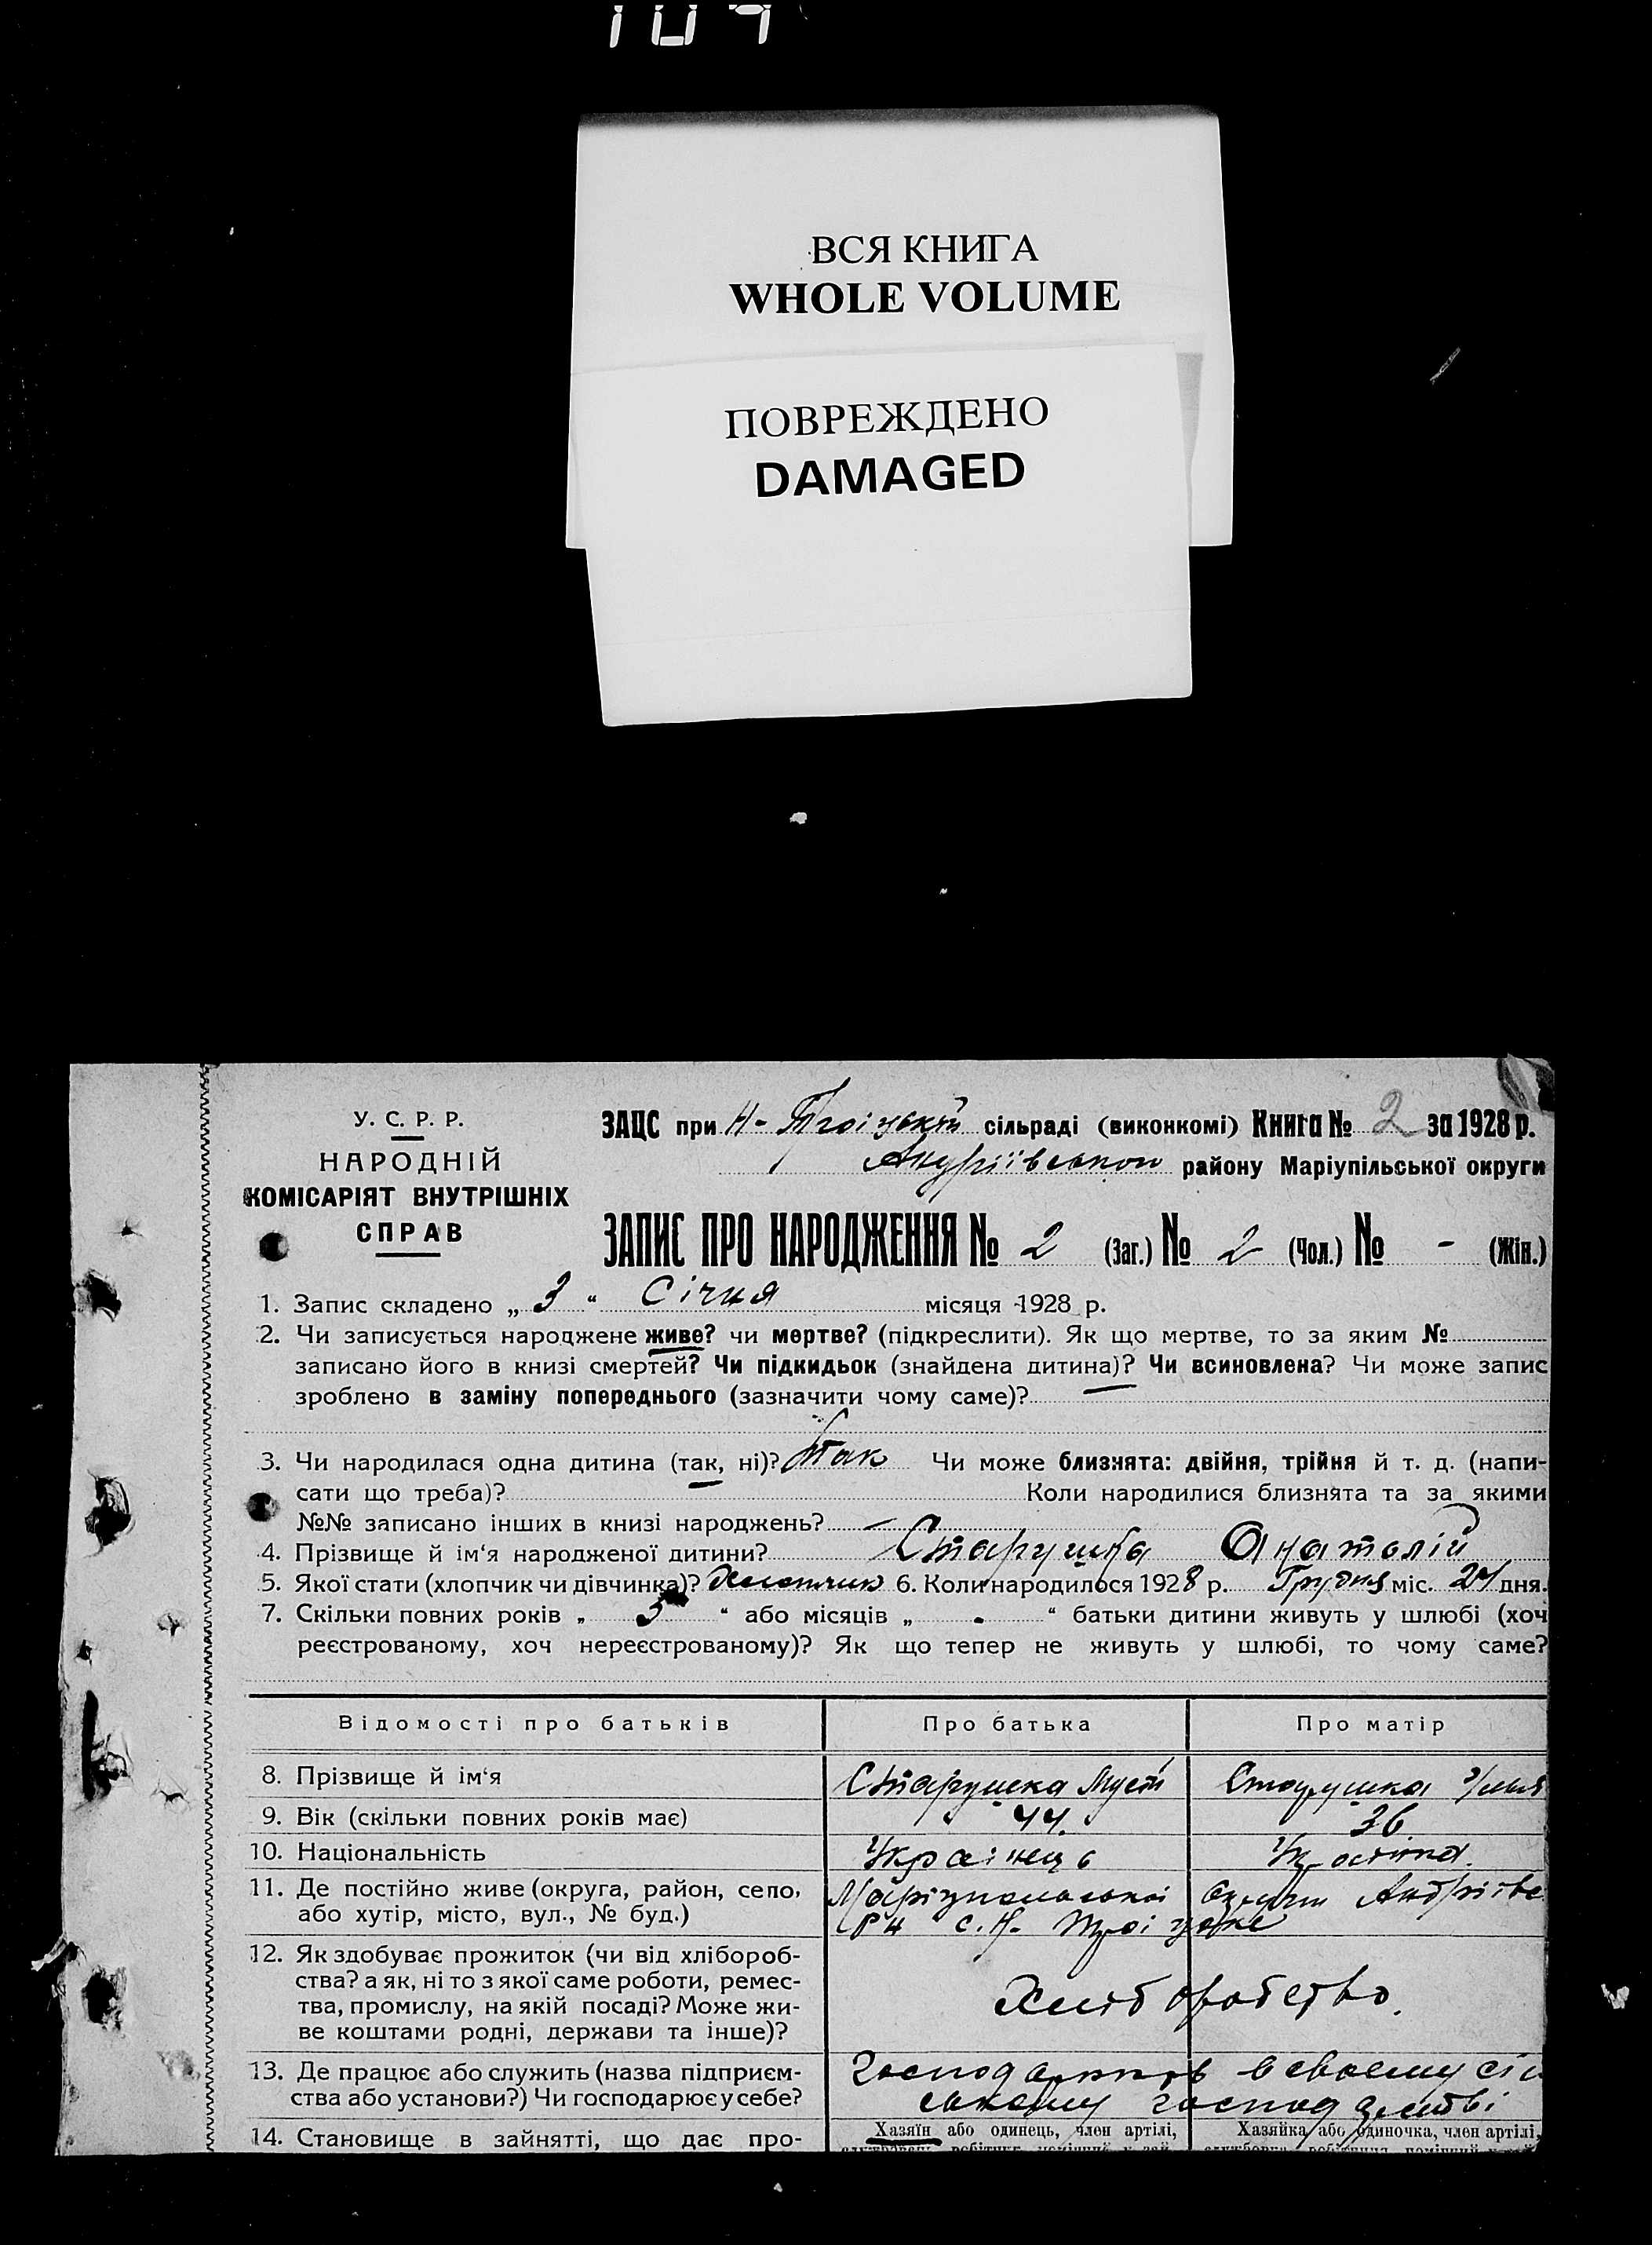 ВСЯ КНИГА
WHOLE VOLUME
ПОВРЕЖДЕНО
DAMAGED
У. С. Р. Р.
НАРОДНІЙ
КОМІСАРІЯТ ВНУТРІШНІХ
СПРАВ
ЗАЦС при Н-Троіцькій сільраді (виконкомі) Книга № 2 за 1928 р.
Андріївського району Маріупільської округи
ЗАПИС ПРО НАРОДЖЕННЯ № 2 (Заг.) № 2 (Чол.) № - (Жін.)
1. Запис складено „ 3 “ Січня місяця 1928 р.
2. Чи записується народжене живе? чи мертве? (підкреслити). Як що мертве, то за яким №
записано його в книзі смертей? Чи підкидьок (знайдена дитина)? Чи всиновлена? Чи може запис
зроблено в заміну попереднього (зазначити чому саме)?
3. Чи народилася одна дитина (так, ні)? Так Чи може близнята: двійня, трійня й т. д. (напи-
сати що треба)? Коли народилися близнята та за якими
№№ записано інших в книзі народжень? —
4. Прізвище й ім'я народженої дитини? Старушка Анатолій
5. Якої стати (хлопчик чи дівчинка)? Хлопчик 6. Коли народилося 1928 р. Грудня міс. 24 дня.
7. Скільки повних років „ 5 “ або місяців „ - “ батьки дитини живуть у шлюбі (хоч
реєстрованому, хоч нереєстрованому)? Як що тепер не живуть у шлюбі, то чому саме?
Відомості про батьків Про батька Про матір
8. Прізвище й ім'я Старушка Старушка
9. Вік (скільки повних років має) 44. 36
10. Національність Українець Українка
11. Де постійно живе (округа, район, село, Маріупольської округи Андріївс
або хутір, місто, вул., № буд.) Рн с. Н-Троіцьке
12. Як здобуває прожиток (чи від хлібороб-
ства? а як, ні то з якої саме роботи, ремес-
тва, промислу, на якій посаді? Може жи-
ве коштами родні, держави та інше)?
Хліборобство.
13. Де працює або служить (назва підприєм- в своєму сіл
ства або установи?) Чи господарює у себе? ському господарстві
14. Становище в зайнятті, що дає про- Хазяїн або одинець, член артілі, Хазяйка або одиночка, член артілі,